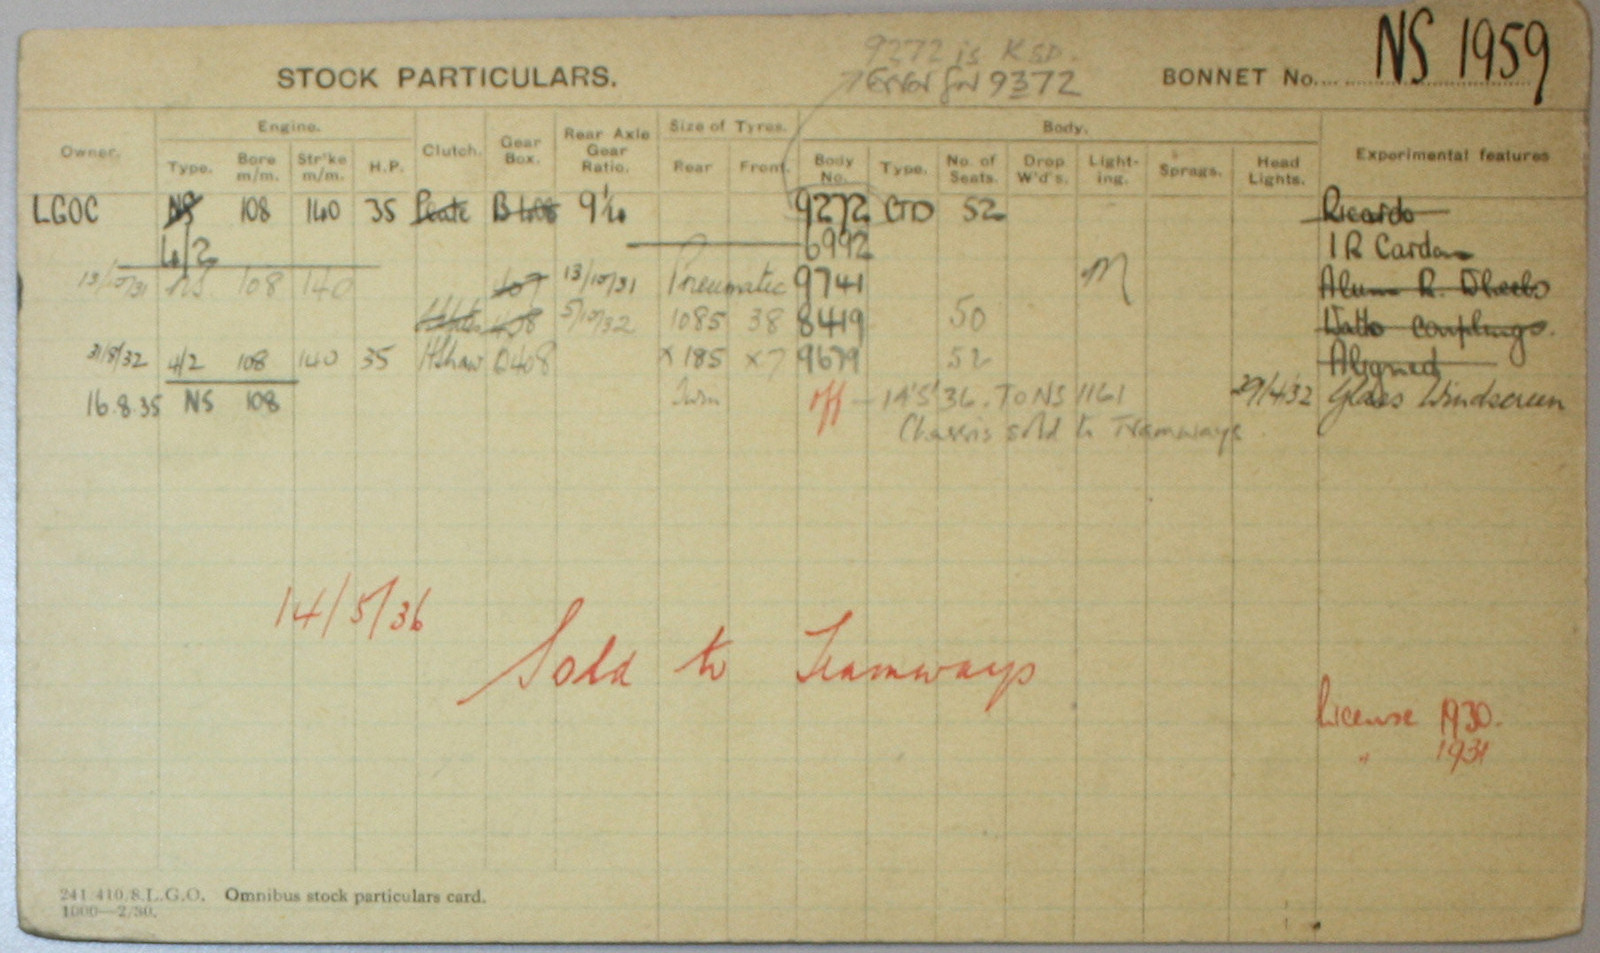 9272 is KSD.
STOCK PARTICULARS. Error for 9372 BONNET No. NS 1959
Engine. Size of Tyres. Body.
Owner. Type. Bore m/m. Str'ke m/m. H.P. Clutch. Gear Box. Rear Axle Gear Ratio. Rear Front. Body No. Type. No. of Seats. Drop W'd's. Light-ing. Sprags. Head Lights. Experimental features
LGOC NS 108 140 35 Plate B408 9¼ 9272 CTD 52 Ricardo
4/2 6992 1 R Cardan
13/10/31 NS 108 140 407 13/10/31 Pneumatic 9741 M Alum R. Wheels
408 5/10/32 1085 38 8419 50 Watts couplings.
31/8/32 4/2 108 140 35 Hshaw 408 x 185 x 7 9679 52 Aligned
16.8.35 NS 108 Twin off - 14'5'36. To NS 1161 29/4/32 Glass Windscreen
Chassis sold to Tramways.
14/5/36
Sold to Tramways
License 1930.
" 1931
241/410/8.L.G.O. Omnibus stock particulars card.
1000—2/30.